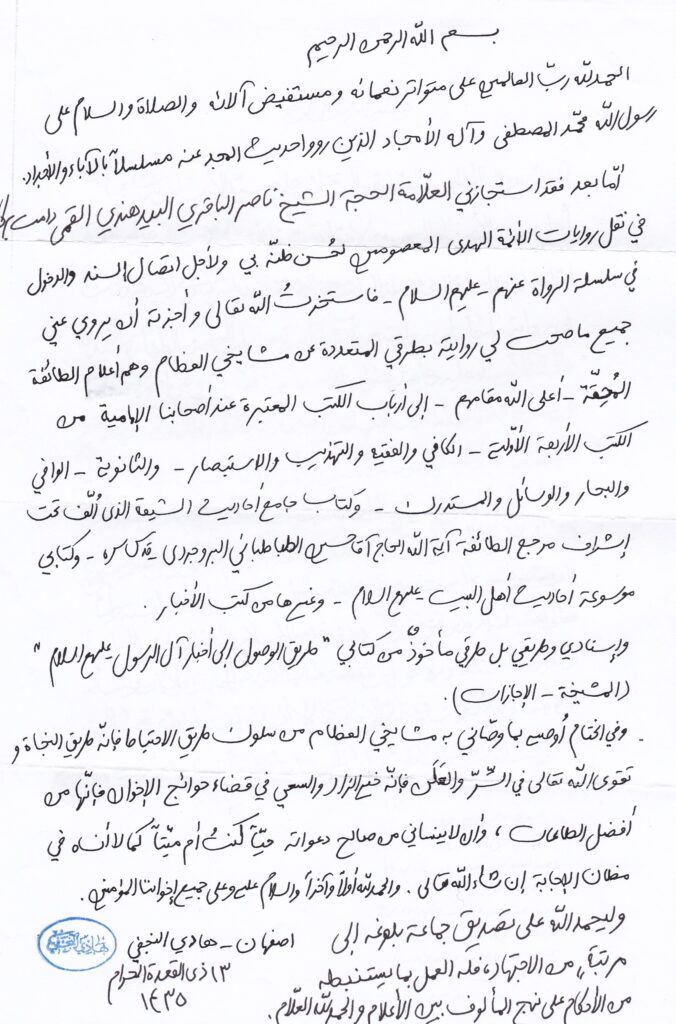 بسم الله الرحمن الرحيم
الحمدلله ربّ العالمين على متواتر نعمائه و مستفيض آلائه والصلاة والسلام على
رسول الله محمّد المصطفى وآله الأمجاد الذين رووا حديث المجد عنه مسلسلاً بالآباء والأجداد.
أمّا بعد فقد استجازني العلّامة الحجة الشيخ ناصر الباقري البيدهندي القمي دامت بركاته
في نقل روايات الأئمة الهدى المعصومين لحُسن ظنّه بي ولاجل اتصال السند والدخول
في سلسلة الرواة عنهم - عليهم السلام - فاستخرتُ الله تعالى وأجزته أن يروي عني
جميع ما صحت لي روايته بطرقي المتعددة عن مشايخي العظام وهم أعلام الطائفة
المُحِقّة - أعلى الله مقامهم - إلى أرباب الكتب المعتبرة عند أصحابنا الإمامية من
الكتب الأربعة الأوّلية - الكافي والفقيه والتهذيب والاستبصار - والثانوية - الوافي
والبحار والوسائل والمستدرك - وكتاب جامع أحاديث الشيعة الذى أُلّف تحت
إشراف مرجع الطائفة آية الله الحاج آقا حسين الطباطبائي البروجردي - قدس سره - وكتابي
موسوعة أحاديث أهل البيت - عليهم السلام - وغيرها من كتب الأخبار.
وإسنادي وطريقي بل طرقي مأخوذٌ من كتابي "طريق الوصول إلى أخبار آل الرسول عليهم السلام"
(المشيخة - الإجازات).
وفي الختام أُوصيه بما وصّاني به مشايخي العظام من سلوك طريق الاحتياط فإنّه طريق النجاة و
تقوى الله تعالى في السِّرّ والعَلَن فإنّه خير الزاد والسعي في قضاء حوائج الإخوان فإنّها من
أفضل الطاعات، وأن لا ينساني من صالح دعواته حيّاً كنتُ أم ميّتاً كما لا أنساه في
مظان الإجابة إن شاء الله تعالى. والحمدلله أولاً وآخراً والسلام عليه وعلى جميع إخواننا المؤمنين.
وليحمد الله على تصديق جماعة بلوغه إلى
مرتبة من الاجتهاد، فله العمل بما يستنبطه
من الأحكام على نهج المألوف بين الأعلام والحمدلله العلّام.
اصفهان - هادي النجفي
١٣ ذى القعدة الحرام
١٤٣٥
هادي النجفي